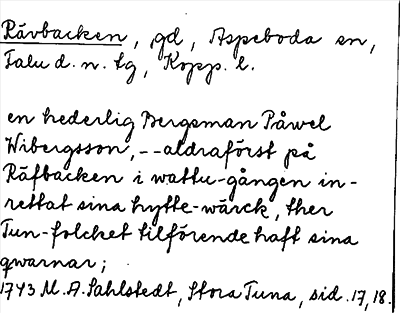 Rävbacken, gd, Aspeboda sn,
Falu d. n. tg, Kopp. l.
en hederlig Bergsman Påwel
Wibergsson, -- aldraförst på
Räfbacken i wattu-gången in-
rettat sina hytte-wärck, ther
Tun-folcket tilförende haft sina
qwarnar;
1743 M.A. Sahlstedt, Stora Tuna, sid. 17, 18.